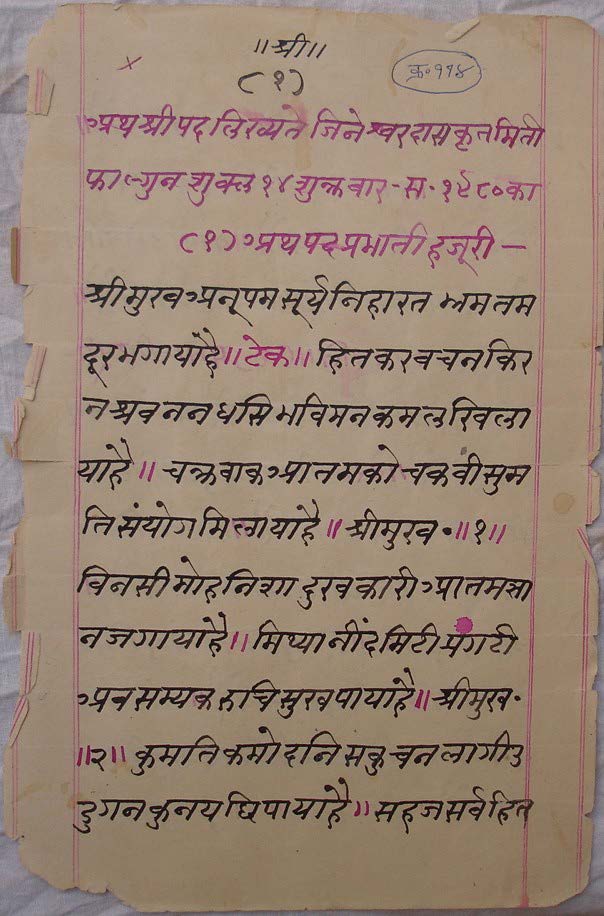 ॥श्री॥
(१)
क्र॰११४
अथ श्रीपद लिख्यते जिनेश्वरदासकृतमिती
फाल्गुन शुक्ल १४ शुक्रवार - स॰ १९८० का
(१) अथ पद प्रभाती हजूरी —
श्रीमुख अनूपम सूर्य निहारत भ्रमतम
दूरभगायाहै॥टेक॥ हितकर वचन किर
न श्रवनन धसि भविमन कमल खिला
याहै॥ चक्रवाक आतमको चकवी सुम
ति संयोग मिलायाहै॥ श्रीमुख॰॥१॥
विनसी मोह निशा दुखकारी आतमज्ञा
न जगायाहै॥ मिथ्या नींद मिटी प्रगटी
अब सम्यक रुचि सुख पायाहै॥ श्रीमुख॰
॥२॥ कुमति कमोदनि सकुचन लागी उ
डुगन कुनय छिपायाहै॥ सहज सर्व हित